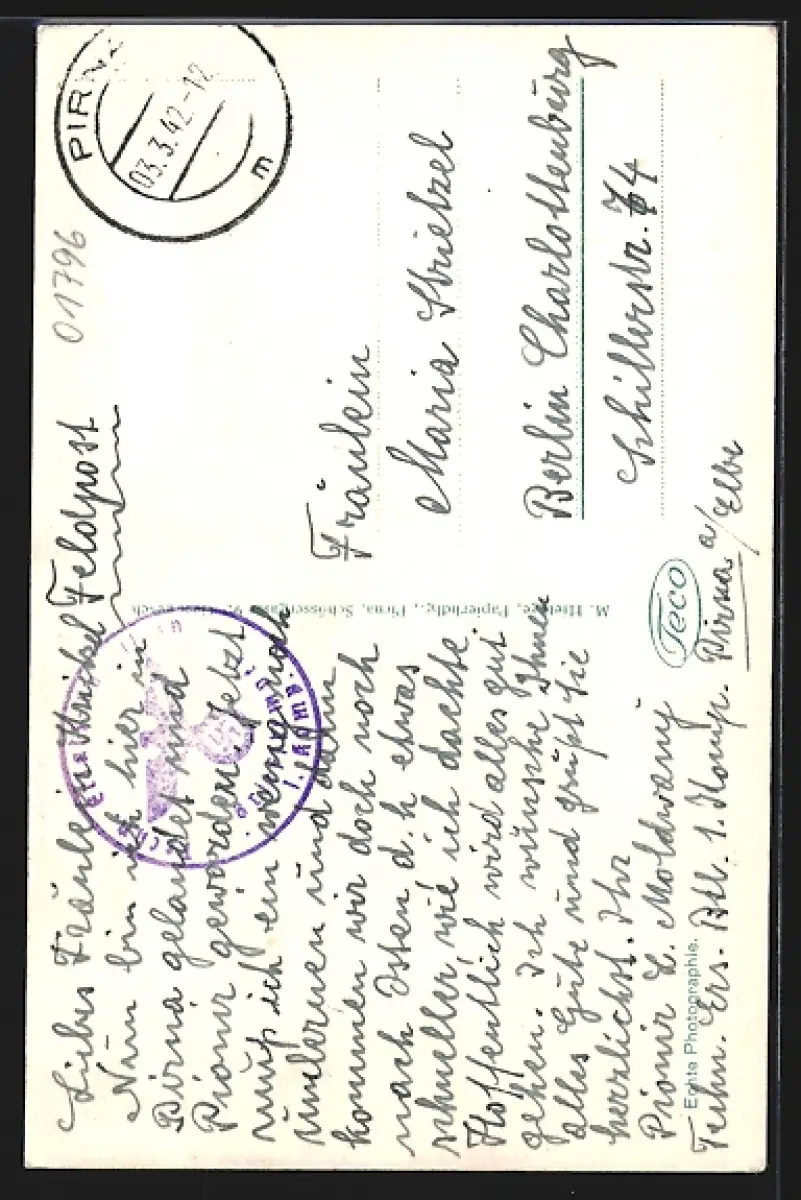 PIRNA
03.3.42-12
m
01796
Feldpost
Liebes Fräulein
Nun bin ich hier in
Pirna gelandet und
Pionir geworden. Jetzt
muß ich ein wenig noch
umlernen und dann
kommen wir doch noch
nach Osten d.h etwas
schneller wie ich dachte.
Hoffentlich wird alles gut
gehen. Ich wünsche Ihnen
alles Gute und grüßt Sie
herzlichst. Ihr
Pionir
Techn. Ers. Btl. 1. Komp. Pirna a/Elbe
Fräulein
Maria
Berlin Charlottenburg
Schillerstr. 74
M. Hietzge, Papierhdlg., Pirna,
Teco
Echte Photographie.
1. Komp.